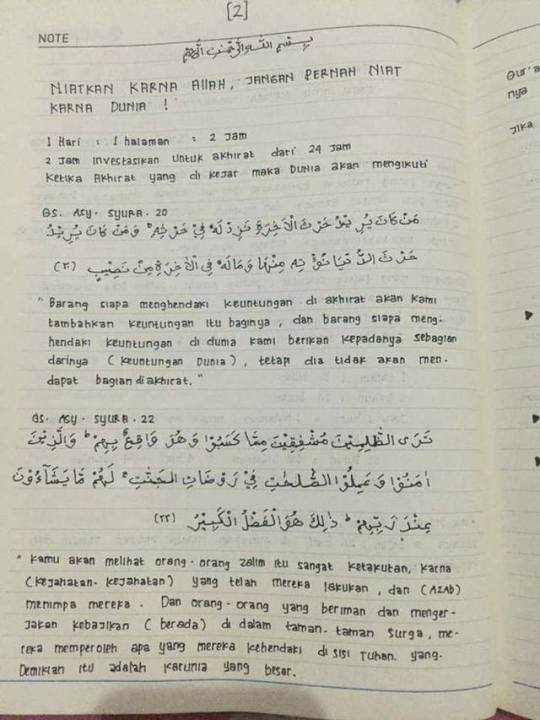 [2]
NOTE
بسم الله الرحمن الرحيم
NIATKAN KARNA AllAH, JANGAN PERNAH NIAT
KARNA DUNIA !
1 Hari : 1 halaman : 2 Jam
2 Jam Investasikan untuk akhirat dari 24 Jam
Ketika Akhirat yang di kejar maka Dunia akan mengikuti
QS. ASY-SYURA. 20
مَنْ كَانَ يُرِيْدُ حَرْثَ الْاٰخِرَةِ نَزِدْ لَهٗ فِيْ حَرْثِهٖ ۚ وَمَنْ كَانَ يُرِيْدُ
حَرْثَ الدُّنْيَا نُؤْتِهٖ مِنْهَا وَمَا لَهٗ فِى الْاٰخِرَةِ مِنْ نَّصِيْبٍ (٢٠)
" Barang siapa menghendaki keuntungan di akhirat akan kami
tambahkan keuntungan itu baginya, dan barang siapa meng-
hendaki keuntungan di dunia kami berikan kepadanya sebagian
darinya ( keuntungan Dunia ), tetapi dia tidak akan men-
dapat bagian di akhirat. "
QS. ASY-SYURA. 22
تَرَى الظّٰلِمِيْنَ مُشْفِقِيْنَ مِمَّا كَسَبُوْا وَهُوَ وَاقِعٌ ۢ بِهِمْ ۗ وَالَّذِيْنَ
اٰمَنُوْا وَعَمِلُوا الصّٰلِحٰتِ فِيْ رَوْضَاتِ الْجَنّٰتِ ۚ لَهُمْ مَّا يَشَاۤءُوْنَ
عِنْدَ رَبِّهِمْ ۗ ذٰلِكَ هُوَ الْفَضْلُ الْكَبِيْرُ (٢٢)
" Kamu akan melihat orang-orang zalim itu sangat ketakutan, karna
(kejahatan-kejahatan) yang telah mereka lakukan, dan (AZAB)
menimpa mereka. Dan orang-orang yang beriman dan menger-
jakan kebajikan ( berada) di dalam taman-taman surga, me-
reka memperoleh apa yang mereka kehendaki di sisi Tuhan. yang.
Demikian itu adalah karunia yang besar.
Qur'a
nya
Jika